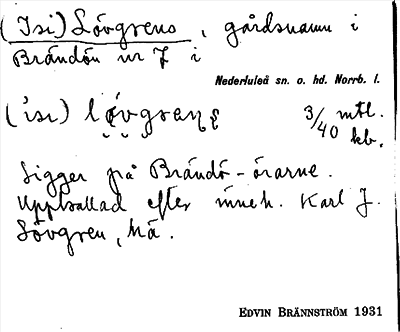 (Isi) Lövgrens, gårdsnamn i
Brändön nr 7 i
Nederluleå sn. o. hd. Norrb. l.
3/40 mtl.
kb.
Ligger på Brändö-örarne.
Uppkallad efter inneh. Karl J.
Lövgren,
EDVIN BRÄNNSTRÖM 1931